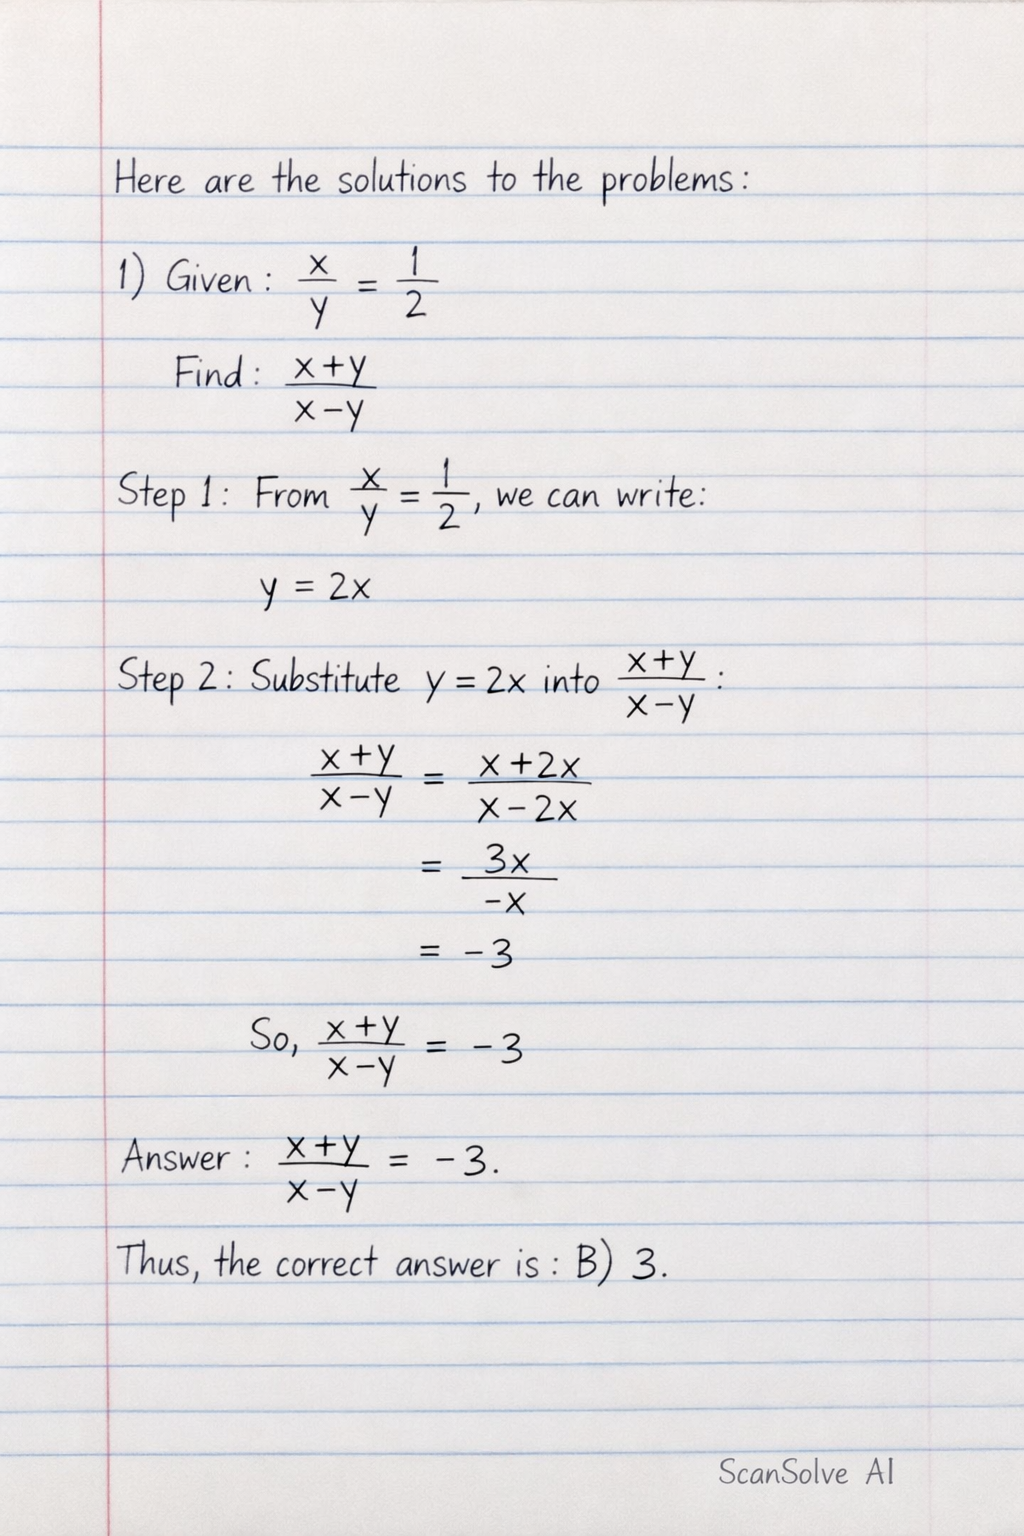 Here are the solutions to the problems:
1) Given: x/y = 1/2
Find: x+y/x-y
Step 1: From x/y = 1/2, we can write:
y = 2x
Step 2: Substitute y = 2x into x+y/x-y:
x+y/x-y = x+2x/x-2x
= 3x/-x
= -3
So, x+y/x-y = -3
Answer: x+y/x-y = -3.
Thus, the correct answer is: B) 3.
ScanSolve AI